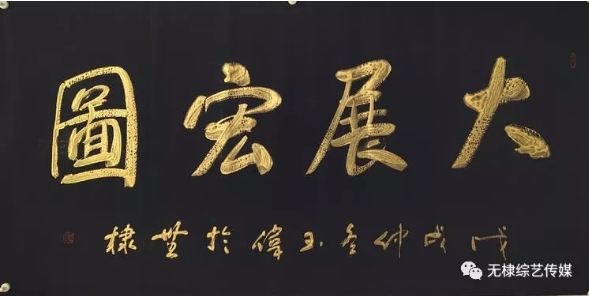 大展宏圖
戊戌仲冬玉偉於無棣
无棣综艺传媒